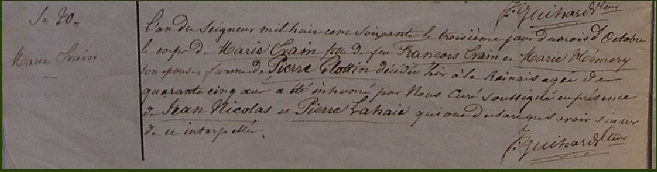 J. Guihard
Sr 20.
L'an du Seigneur mil huit cent soixante le troisième jour du mois d'Octobre
le corps de Marie Crain fille de feu François Crain et Marie Hémery
Marie Crain
son épouse femme de Pierre Glottin décédée hier à la Rainais agée de
quarante cinq ans a été inhumé par Nous Curé soussigné en présence
de Jean Nicolas et Pierre Lahaie qui ont déclaré ne savoir signer
de ce interpellés.
J. Guihard